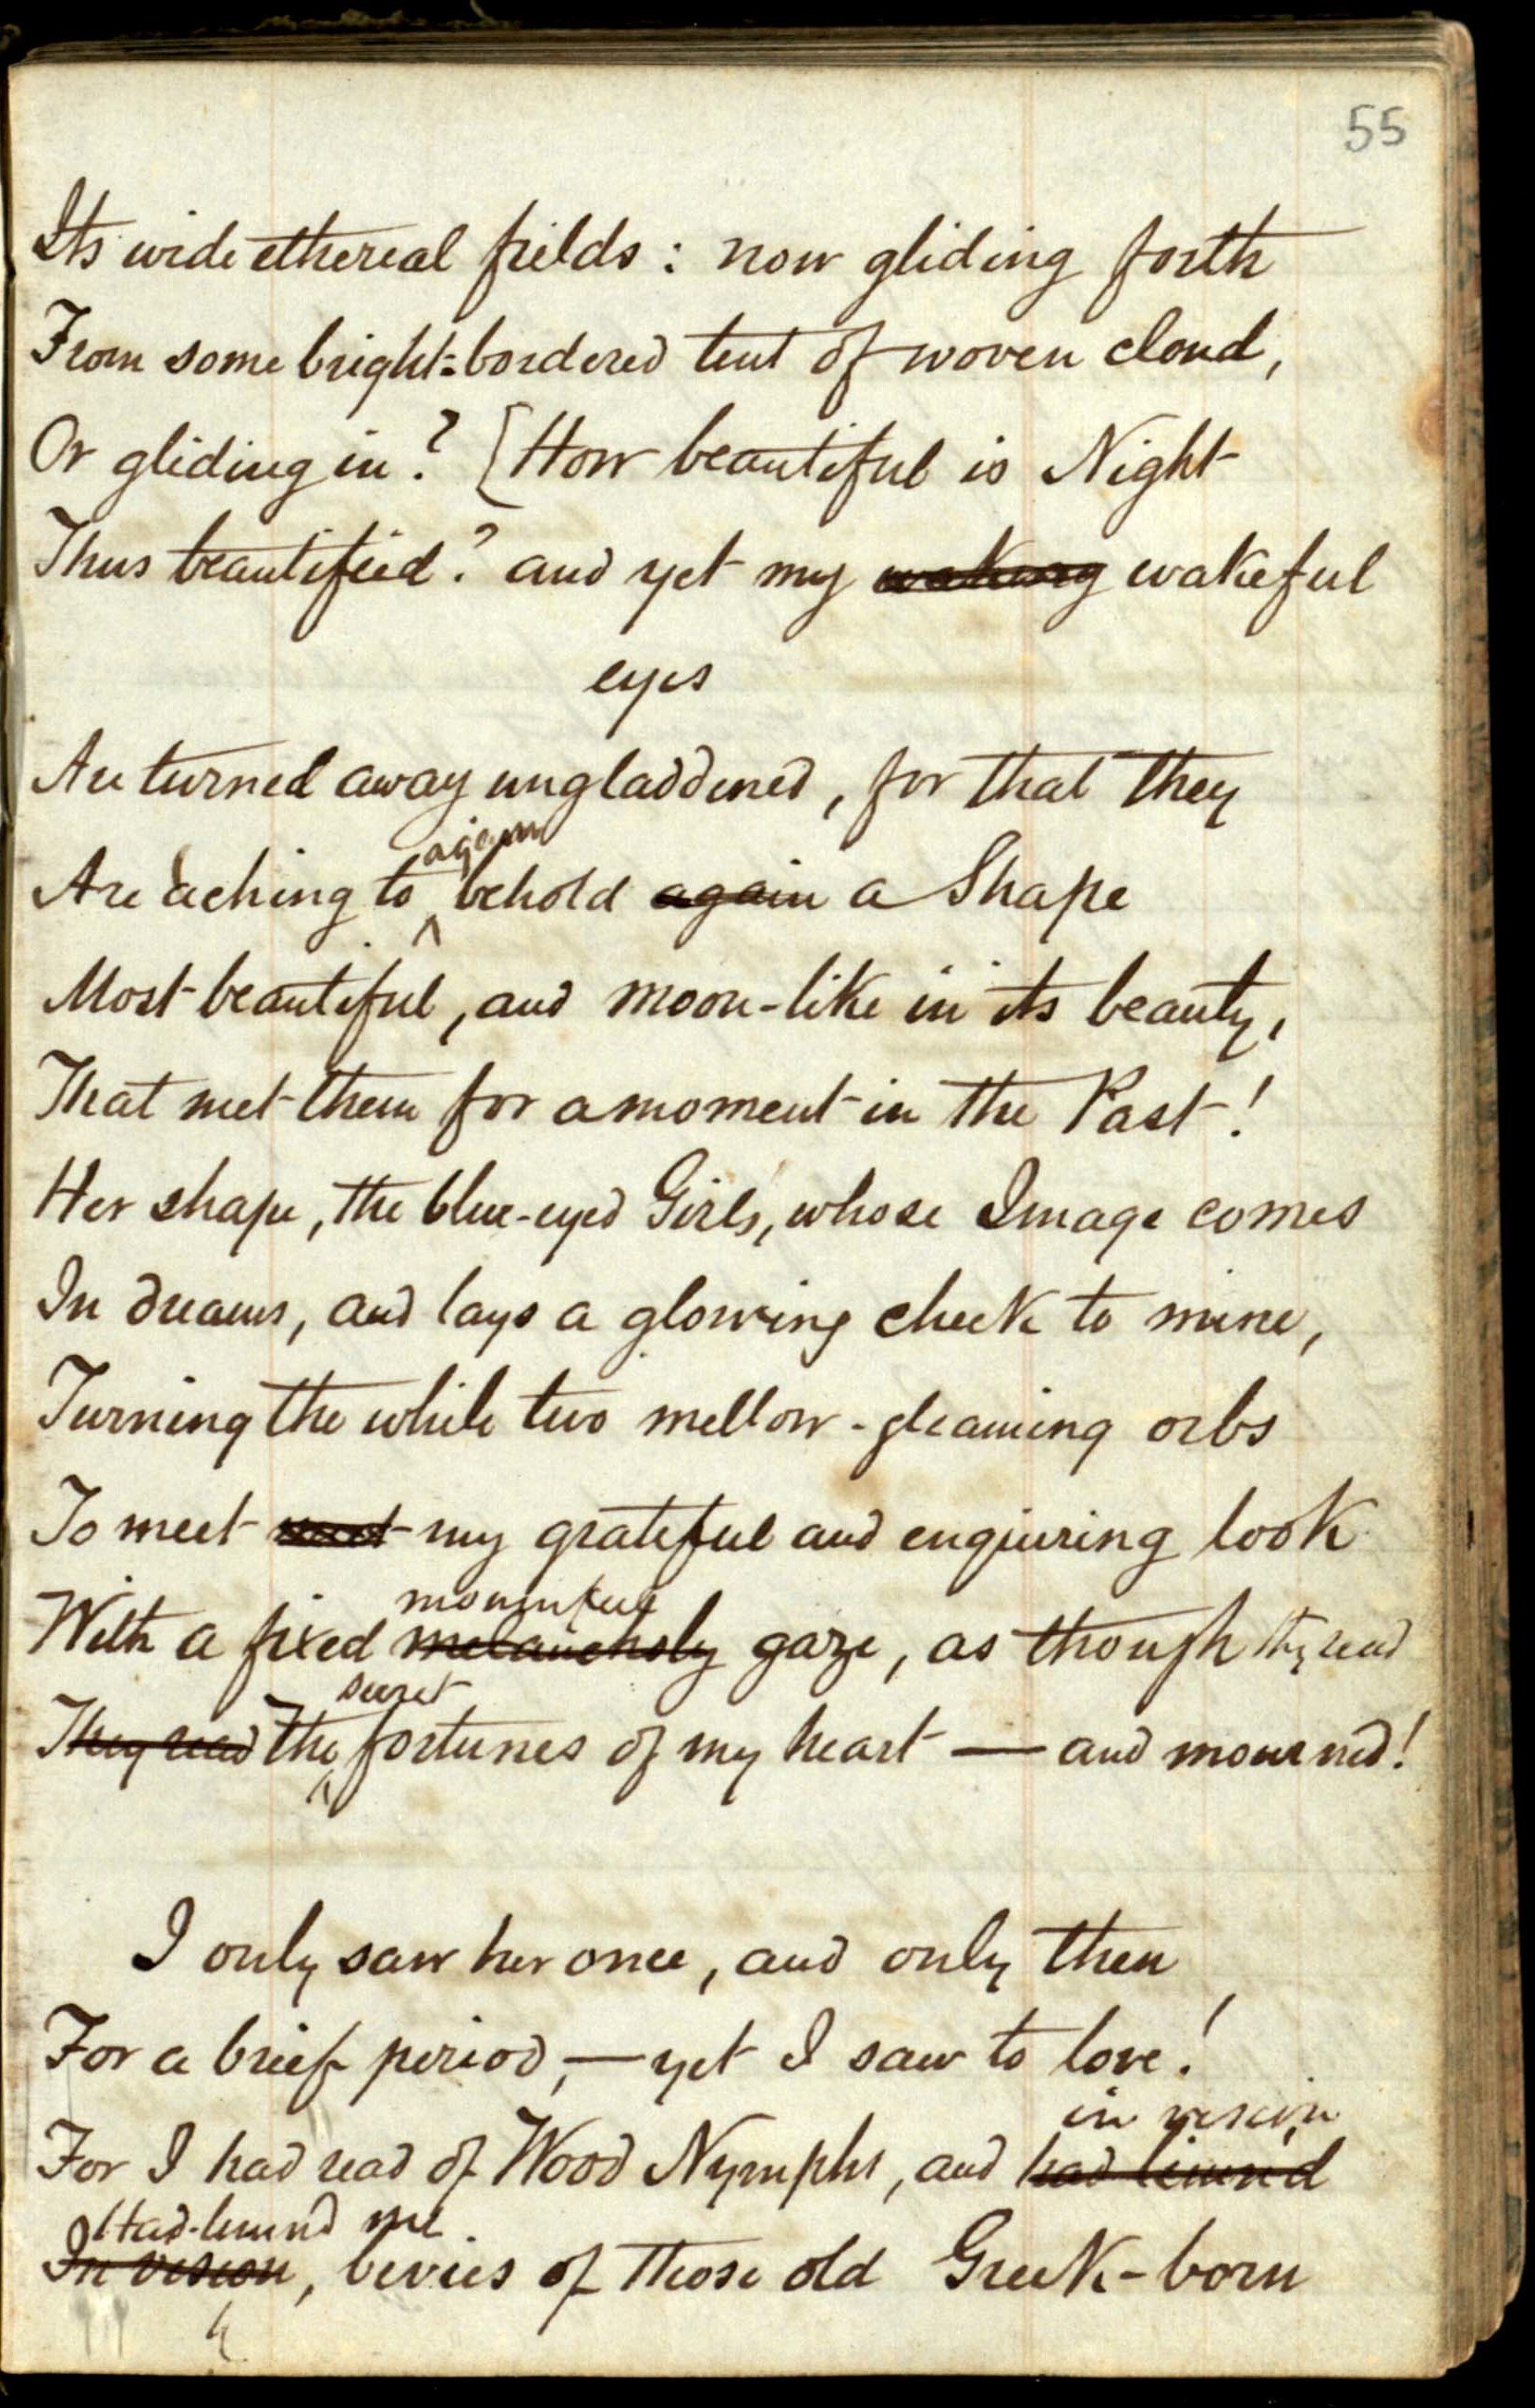 55
Its wide ethereal fields : now gliding forth
From some bright-bordered tent of woven cloud,
Or gliding in? [How beautiful is Night
Thus beautified? and yet my waking wakeful
eyes
Are turned away ungladdened, for that they
again
Are aching to behold again a Shape
Most beautiful, and moon-like in its beauty,
That met them for a moment in the Past!
Her shape, the blue-eyed Girl's, whose Image comes
In dreams, and lays a glowing cheek to mine,
Turning the while two mellow-gleaming orbs
To meet meet my grateful and enquiring look
mournful
With a fixed melancholy gaze, as though they read
secret
They read The fortunes of my heart — and mourned!
I only saw her once, and only then
For a brief period, — yet I saw to love!
in vision
For I had read of Wood Nymphs, and had limn'd
Had limn'd me
In vision, bevies of those old Greek-born